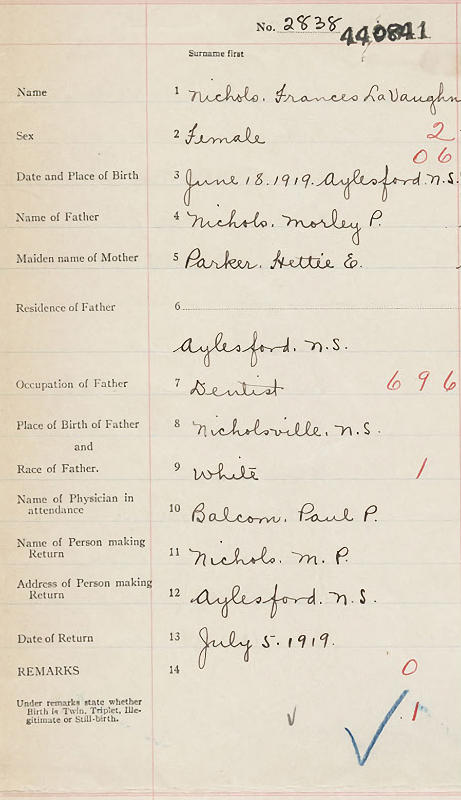 No. 2838 440841
Surname first
Name 1 Nichols. Frances LaVaughn
Sex 2 Female 2
06
Date and Place of Birth 3 June 18. 1919. Aylesford. N.S.
Name of Father 4 Nichols. Morley P.
Maiden name of Mother 5 Parker. Hettie E.
Residence of Father 6
Aylesford. N.S.
Occupation of Father 7 Dentist 696
Place of Birth of Father 8 Nicholsville. N.S.
and
Race of Father. 9 White 1
Name of Physician in
attendance 10 Balcom. Paul P.
Name of Person making
Return 11 Nichols. M. P.
Address of Person making
Return 12 Aylesford. N.S.
Date of Return 13 July 5. 1919.
REMARKS 14 0
Under remarks state whether
Birth is Twin, Triplet, Ille-
gitimate or Still-birth. 1